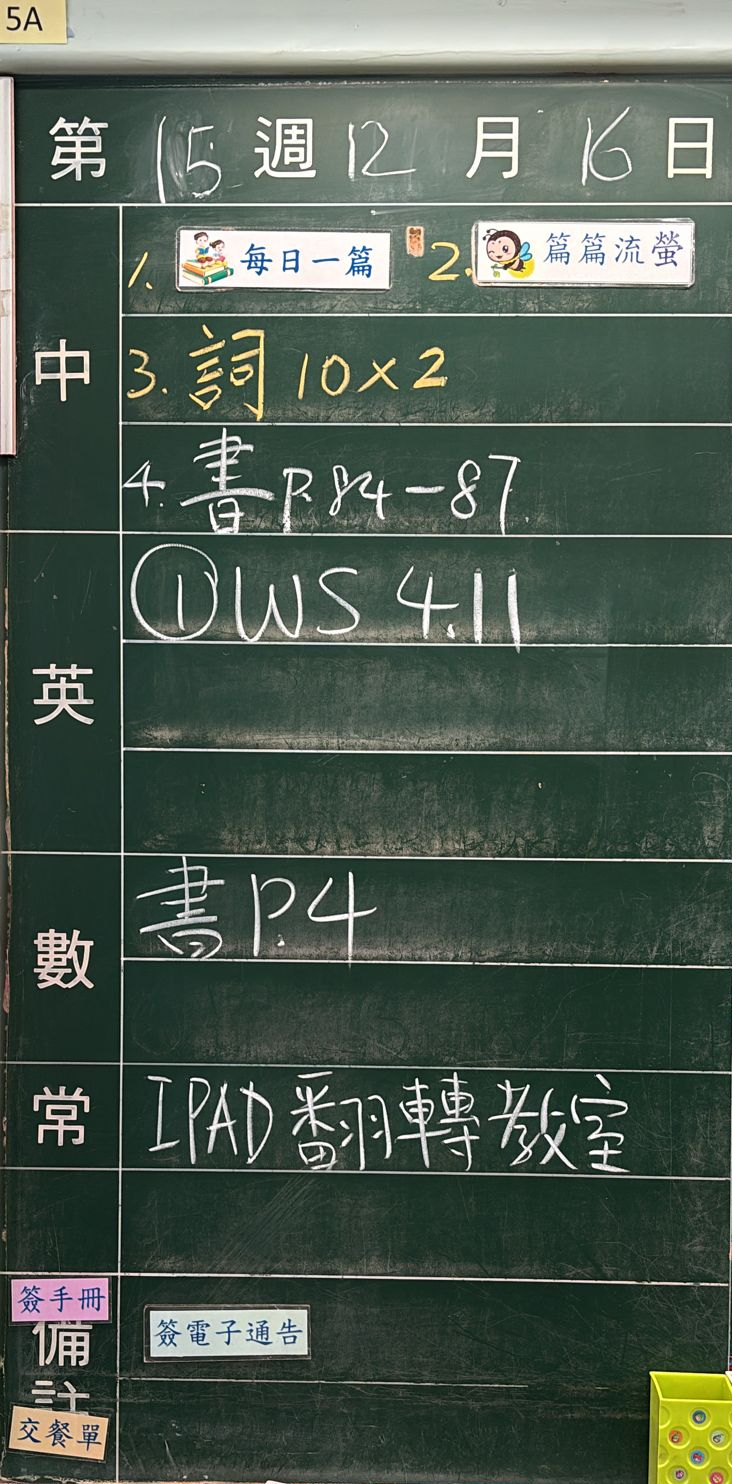 5A
第 15 週 12 月 16 日
中
1. 每日一篇 2. 篇篇流螢
3. 詞 10×2
4. 書 P.84-87
英
① WS 4.11
數
書 P.4
常
IPAD 翻轉教室
簽手冊
備註
簽電子通告
交餐單